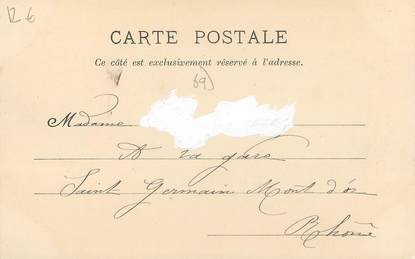 12 €
CARTE POSTALE
Ce côté est exclusivement réservé à l'adresse.
69)
Madame
A la gare
Saint Germain Mont d'or
Rhône